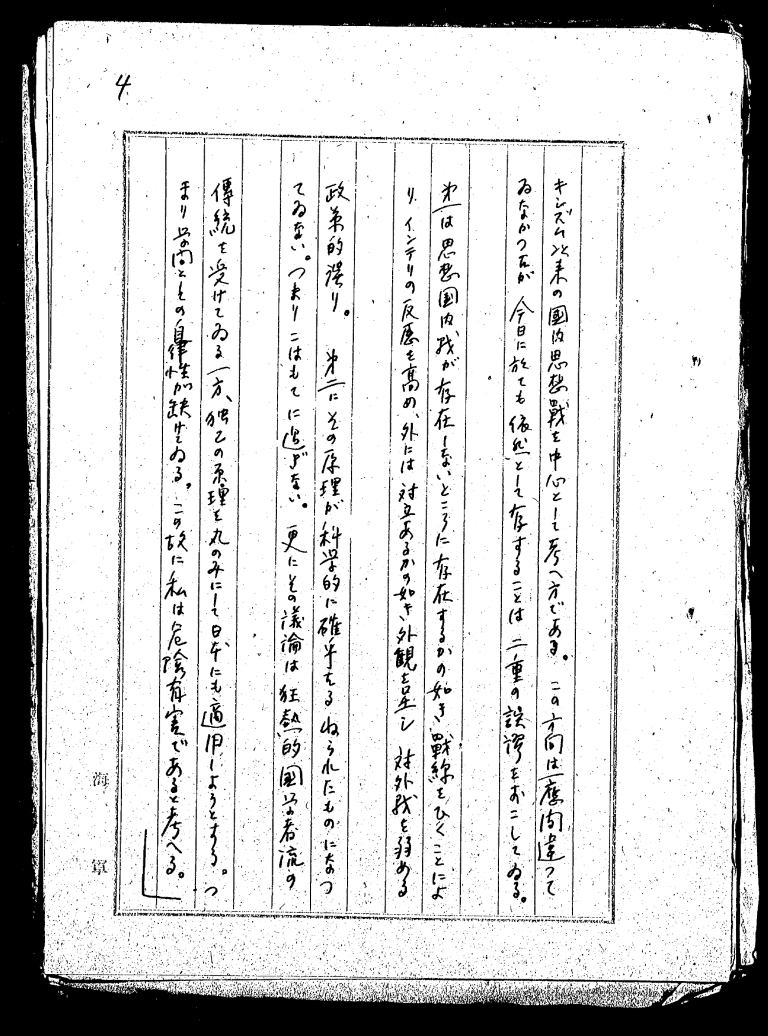 4.
キシズム以来の國内思想戰を中心として考へ方である。この方向は一應間違つて
ゐなかつたが 今日に於ても依然として存することは 二重の誤謬をおこしてゐる。
第一は思想国内戦が存在しないところに存在するかの如き戰線をひくことによ
り、インテリの反感を高め、外には対立あるかの如き外観を呈し 対外戦を弱める
政策的誤り。 第二にその原理が科学的に確乎たるねられたものになつ
てゐない。つまりこはもてに過ぎない。更にその議論は狂熱的國学者流の
傳統を受けてゐる一方、独乙の原理を丸のみにして日本にも適用しようとする。つ
まり学問としての自律性が缺けゐる。この故に私は危険有害であると考へる。
海軍